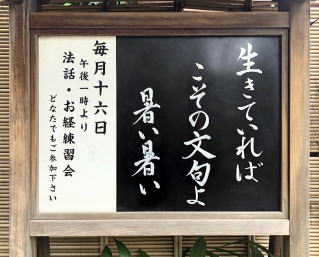 生きていれば
こその文句よ
暑い暑い
毎月十六日
午後一時より
法話・お経練習会
どなたでもご参加下さい